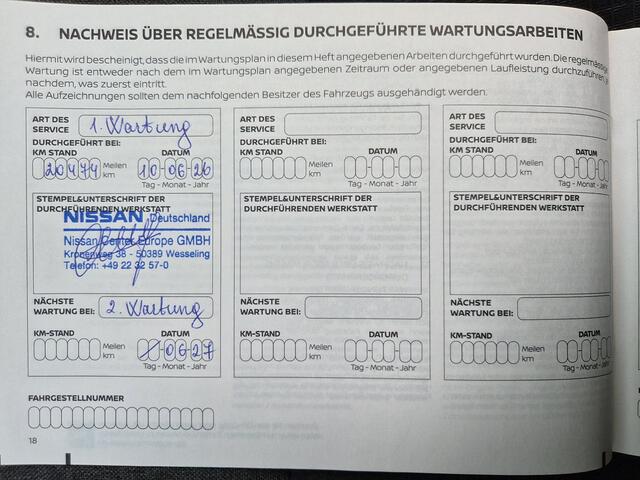 8. NACHWEIS ÜBER REGELMÄSSIG DURCHGEFÜHRTE WARTUNGSARBEITEN
Hiermit wird bescheinigt, dass die im Wartungsplan in diesem Heft angegebenen Arbeiten durchgeführt wurden. Die regelmässige
Wartung ist entweder nach dem im Wartungsplan angegebenen Zeitraum oder angegebenen Laufleistung durchzuführen, je
nachdem, was zuerst eintritt.
Alle Aufzeichnungen sollten dem nachfolgenden Besitzer des Fahrzeugs ausgehändigt werden.
ART DES SERVICE 1. Wartung
DURCHGEFÜHRT BEI:
KM STAND DATUM
20474 Meilen km 10-06-26
Tag - Monat - Jahr
STEMPEL&UNTERSCHRIFT DER
DURCHFÜHRENDEN WERKSTATT
NISSAN Deutschland
Nissan Center Europe GMBH
Kronenweg 38 - 50389 Wesseling
Telefon: +49 22 32 57-0
NÄCHSTE WARTUNG BEI: 2. Wartung
KM-STAND DATUM
Meilen km -06-27
Tag - Monat - Jahr
ART DES SERVICE
DURCHGEFÜHRT BEI:
KM STAND DATUM
Meilen km
Tag - Monat - Jahr
STEMPEL&UNTERSCHRIFT DER
DURCHFÜHRENDEN WERKSTATT
NÄCHSTE WARTUNG BEI:
KM-STAND DATUM
Meilen km
Tag - Monat - Jahr
ART DES SERVICE
DURCHGEFÜHRT BEI:
KM STAND DATUM
Meilen km
Tag - Monat - Jahr
STEMPEL&UNTERSCHRIFT DER
DURCHFÜHRENDEN WERKSTATT
NÄCHSTE WARTUNG BEI:
KM-STAND DATUM
Meilen km
Tag - Monat - Jahr
FAHRGESTELLNUMMER
18